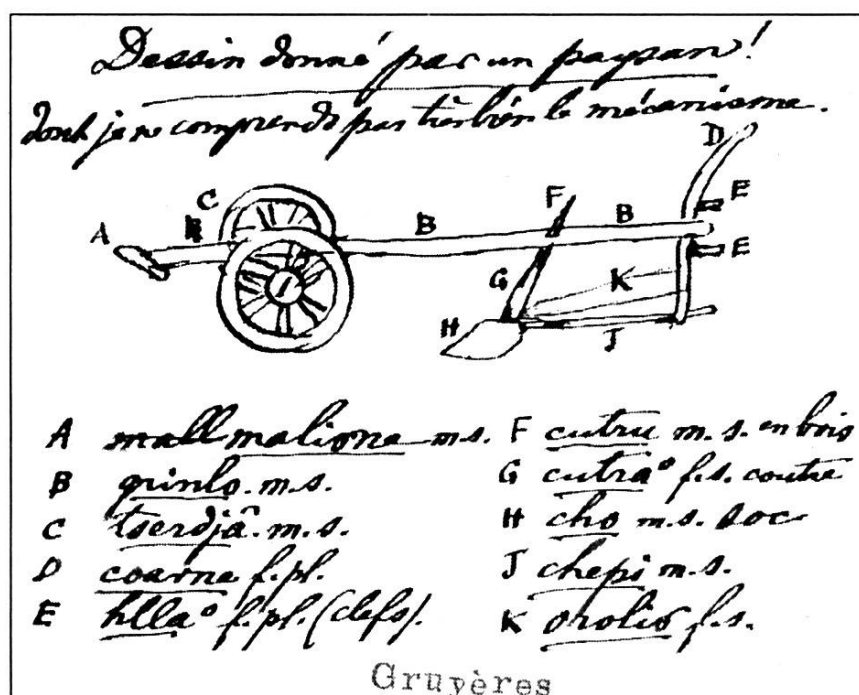 Dessin donné par un paysan!
dont je ne comprends pas très bien le mécanisme.
D
C
F
B
E
A
B
E
G
K
I
H
J
A maliona m.s.
B grinlo. m.s.
C tserdjâ. m.s.
D coarne f.pl.
E hlla° f.pl. (clefs).
F cutru m.s. en bois
G cutra° f.s. coutre
H cho m.s. soc
J chepi m.s.
K orolis f.s.
Gruyères